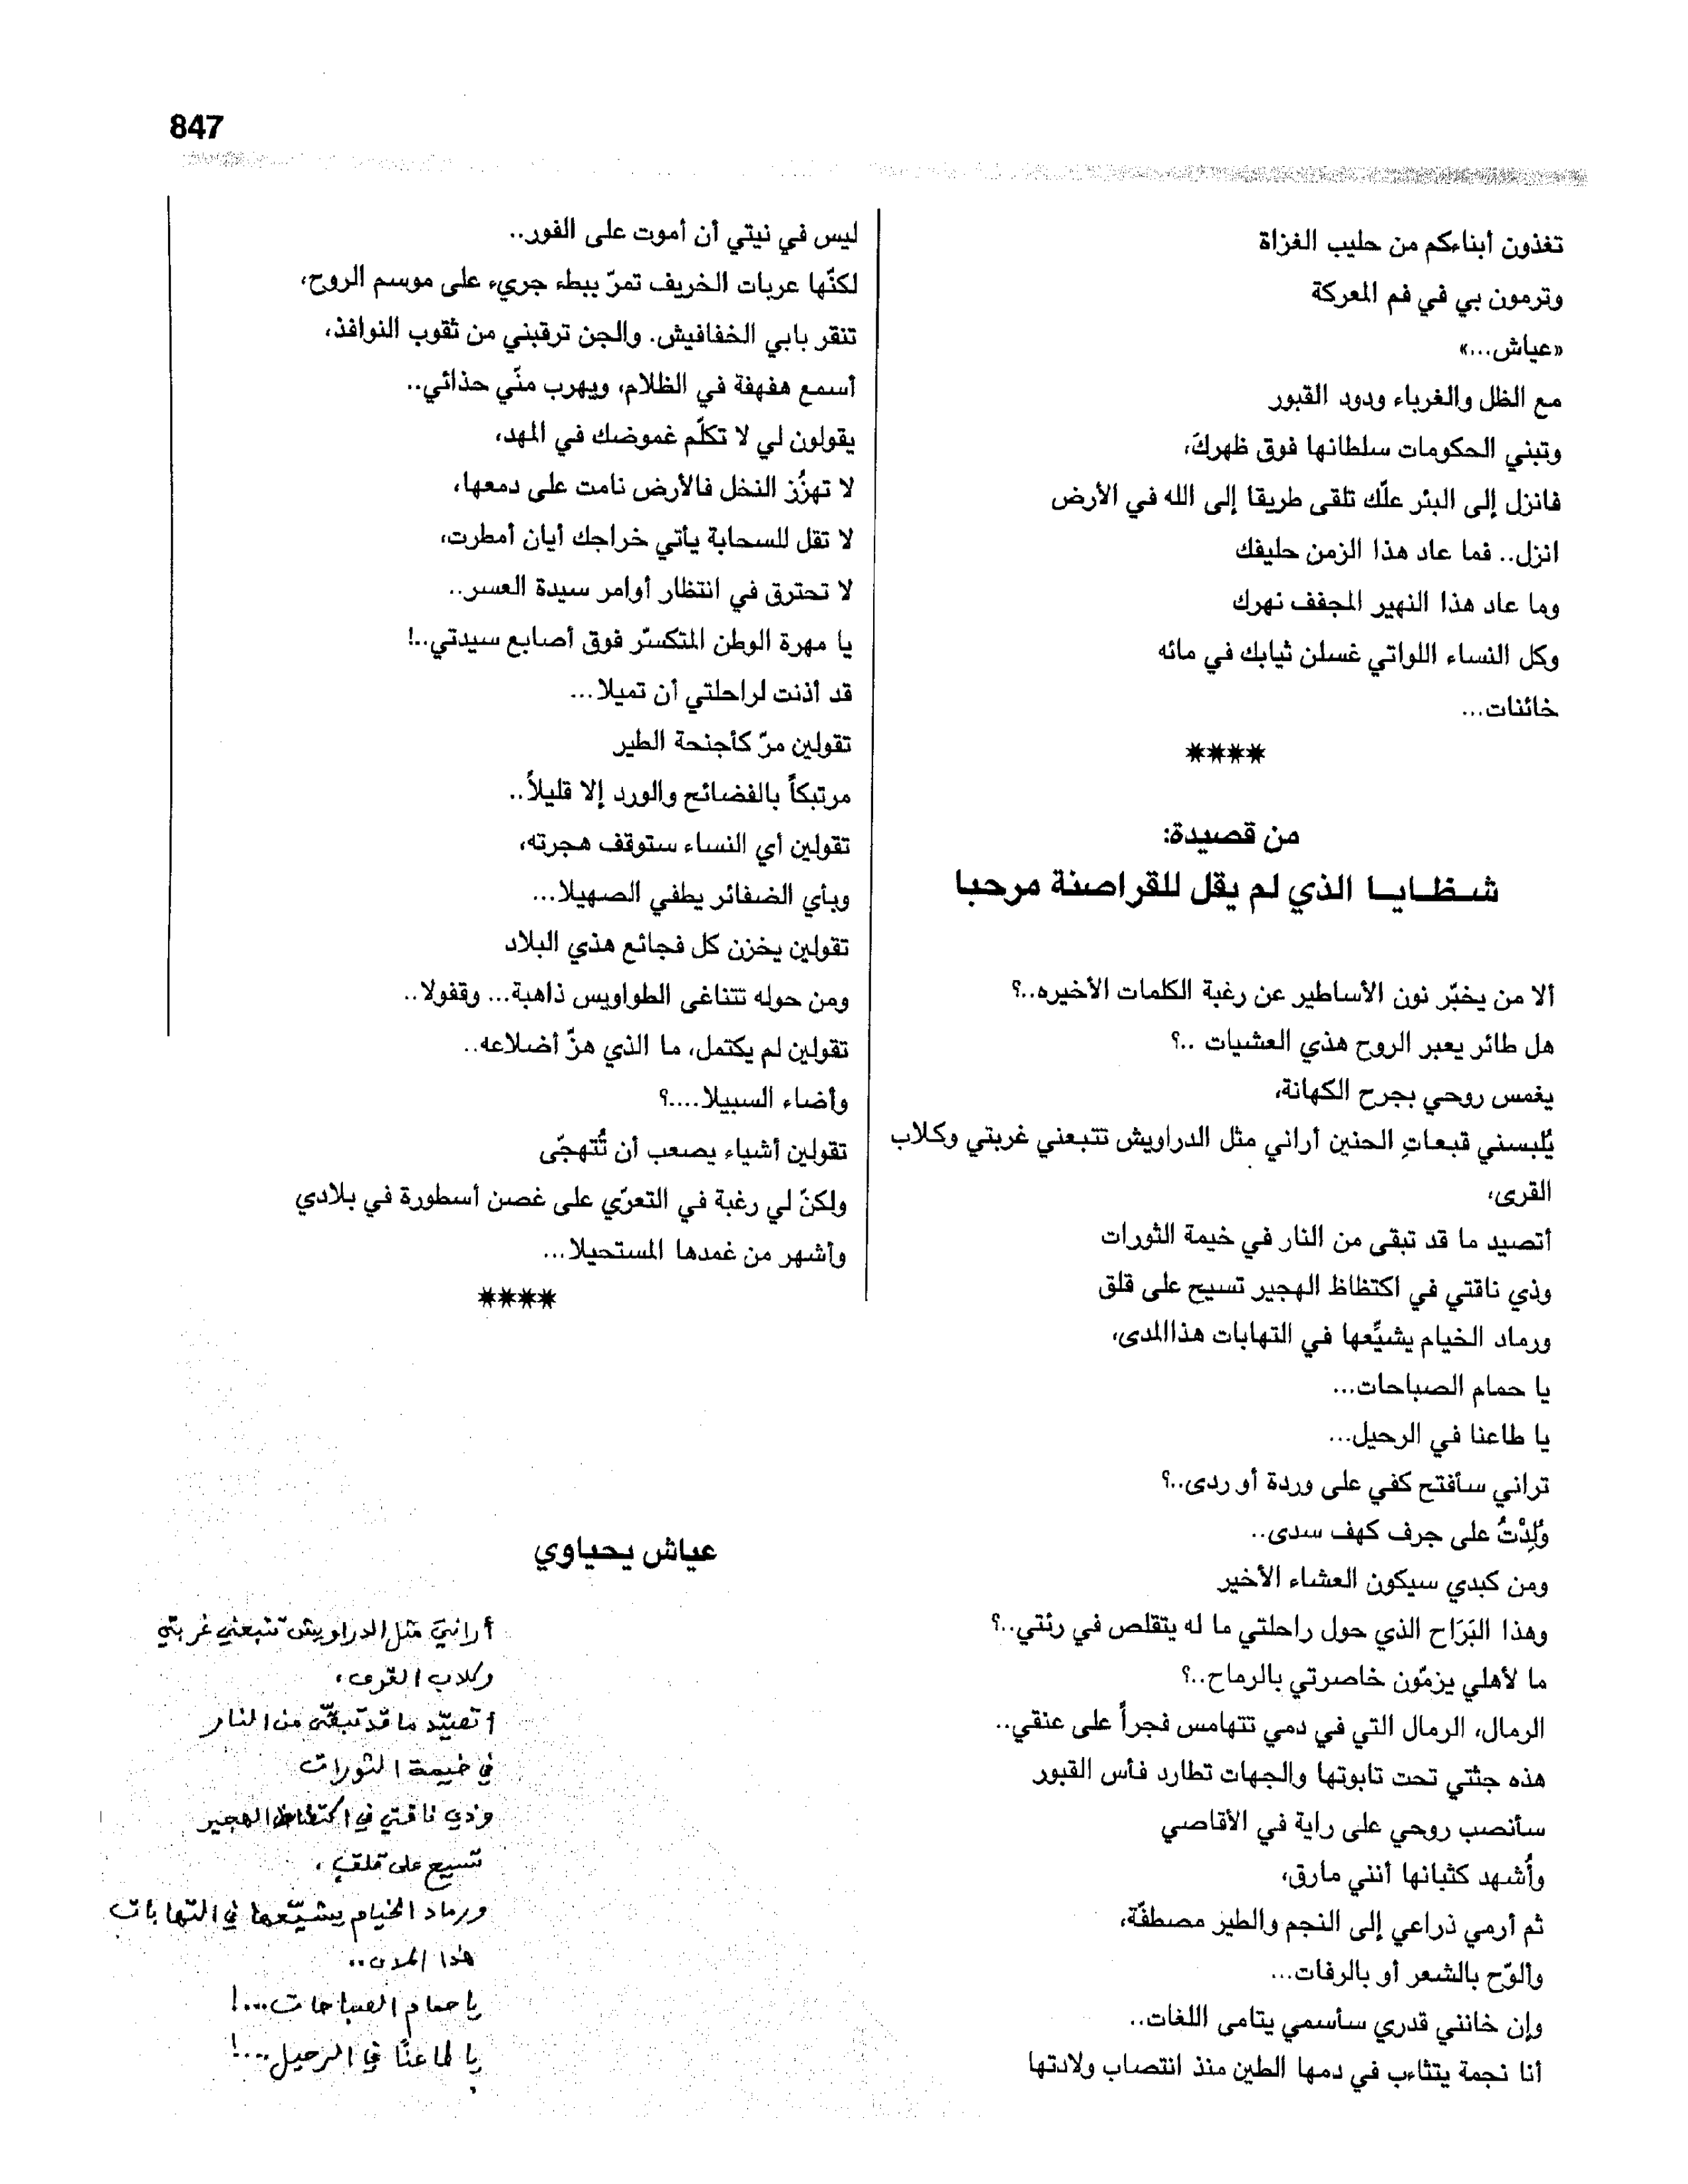 847
تغذون أبناءكم من حليب الغزاة
وترمون بي في فم المعركة
«عياش...»
مع الظل والغرباء ودود القبور
وتبني الحكومات سلطانها فوق ظهركَ،
فانزل إلى البئر علّك تلقى طريقا إلى الله في الأرض
انزل.. فما عاد هذا الزمن حليفك
وما عاد هذا النهير المجفف نهرك
وكل النساء اللواتي غسلن ثيابك في مائه
خائنات...
****
من قصيدة:
شظايا الذي لم يقل للقراصنة مرحبا
ألا من يخبّر نون الأساطير عن رغبة الكلمات الأخيره..؟
هل طائر يعبر الروح هذي العشيات ..؟
يغمس روحي بجرح الكهانة،
يُلبسني قبعاتِ الحنين أراني مثل الدراويش تتبعني غربتي وكلاب
القرى،
أتصيد ما قد تبقى من النار في خيمة الثورات
وذي ناقتي في اكتظاظ الهجير تسيح على قلق
ورماد الخيام يشيِّعها في التهابات هذاالمدى،
يا حمام الصباحات...
يا طاعنا في الرحيل...
تراني سأفتح كفي على وردة أو ردى..؟
وُلِدْتُ على جرف كهف سدى..
ومن كبدي سيكون العشاء الأخير
وهذا البَرَاح الذي حول راحلتي ما له يتقلص في رئتي..؟
ما لأهلي يزمّون خاصرتي بالرماح..؟
الرمال، الرمال التي في دمي تتهامس فجراً على عنقي..
هذه جثتي تحت تابوتها والجهات تطارد فأس القبور
سأنصب روحي على راية في الأقاصي
وأُشهد كثبانها أنني مارق،
ثم أرمي ذراعي إلى النجم والطير مصطفّة،
وألوّح بالشعر أو بالرفات...
وإن خانني قدري سأسمي يتامى اللغات..
أنا نجمة يتثاءب في دمها الطين منذ انتصاب ولادتها
ليس في نيتي أن أموت على الفور..
لكنّها عربات الخريف تمرّ ببطء جريء على موسم الروح،
تنقر بابي الخفافيش. والجن ترقبني من ثقوب النوافذ،
أسمع هفهفة في الظلام، ويهرب منّي حذائي..
يقولون لي لا تكلّم غموضك في المهد،
لا تهزُز النخل فالأرض نامت على دمعها،
لا تقل للسحابة يأتي خراجك أيان أمطرت،
لا تحترق في انتظار أوامر سيدة العسر..
يا مهرة الوطن المتكسّر فوق أصابع سيدتي..!
قد أذنت لراحلتي أن تميلا...
تقولين مرّ كأجنحة الطير
مرتبكاً بالفضائح والورد إلا قليلاً..
تقولين أي النساء ستوقف هجرته،
وبأي الضفائر يطفي الصهيلا...
تقولين يخزن كل فجائع هذي البلاد
ومن حوله تتناغى الطواويس ذاهبة... وقفولا..
تقولين لم يكتمل، ما الذي هزّ أضلاعه..
وأضاء السبيلا....؟
تقولين أشياء يصعب أن تُتهجّى
ولكنّ لي رغبة في التعرّي على غصن أسطورة في بلادي
وأشهر من غمدها المستحيلا...
****
عياش يحياوي
أراني مثل الدراويش تتبعني غربتي
وكلاب القرى،
أتصيّد ما قد تبقّى من النار
في خيمة الثورات
وذي ناقتي في اكتظاظ الهجير
تسيح على قلق،
ورماد الخيام يشيّعها في التهابات
هذا المدى..
يا حمام الصباحات...!
يا طاعنًا في الرحيل...!